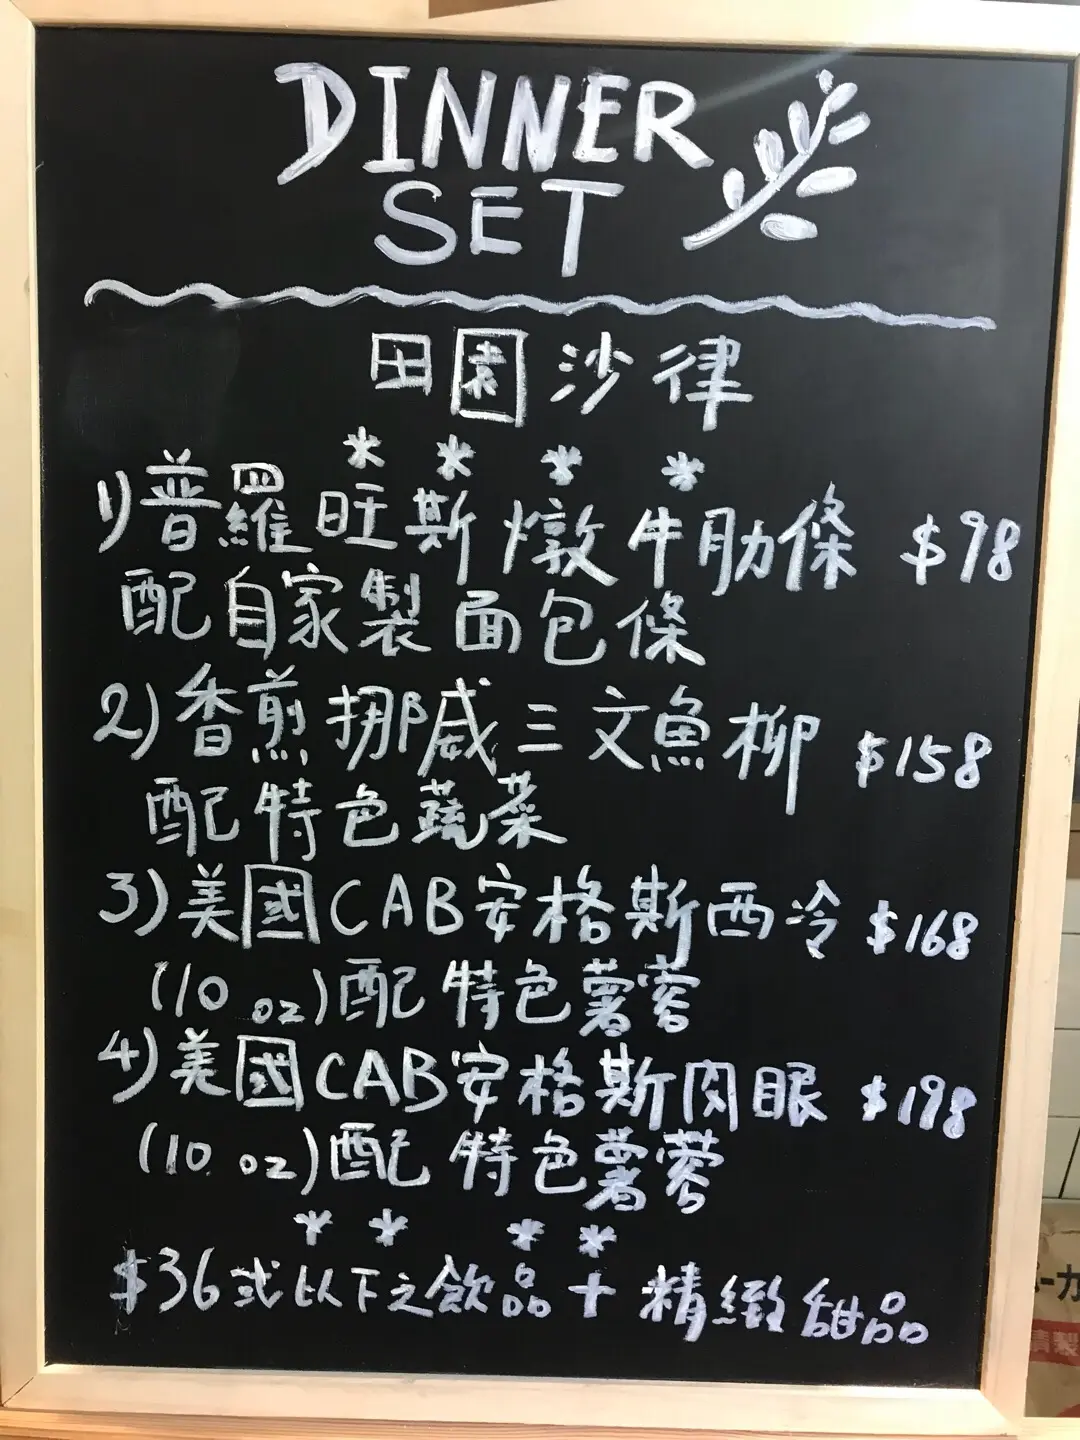 DINNER
SET
田園沙律
* * * *
1) 普羅旺斯燉牛肋條 $98
配自家製面包條
2) 香煎挪威三文魚柳 $158
配特色蔬菜
3) 美國CAB安格斯西冷 $168
(10 oz) 配特色薯蓉
4) 美國CAB安格斯肉眼 $198
(10 oz) 配特色薯蓉
* * * *
$36或以下之飲品 + 精緻甜品